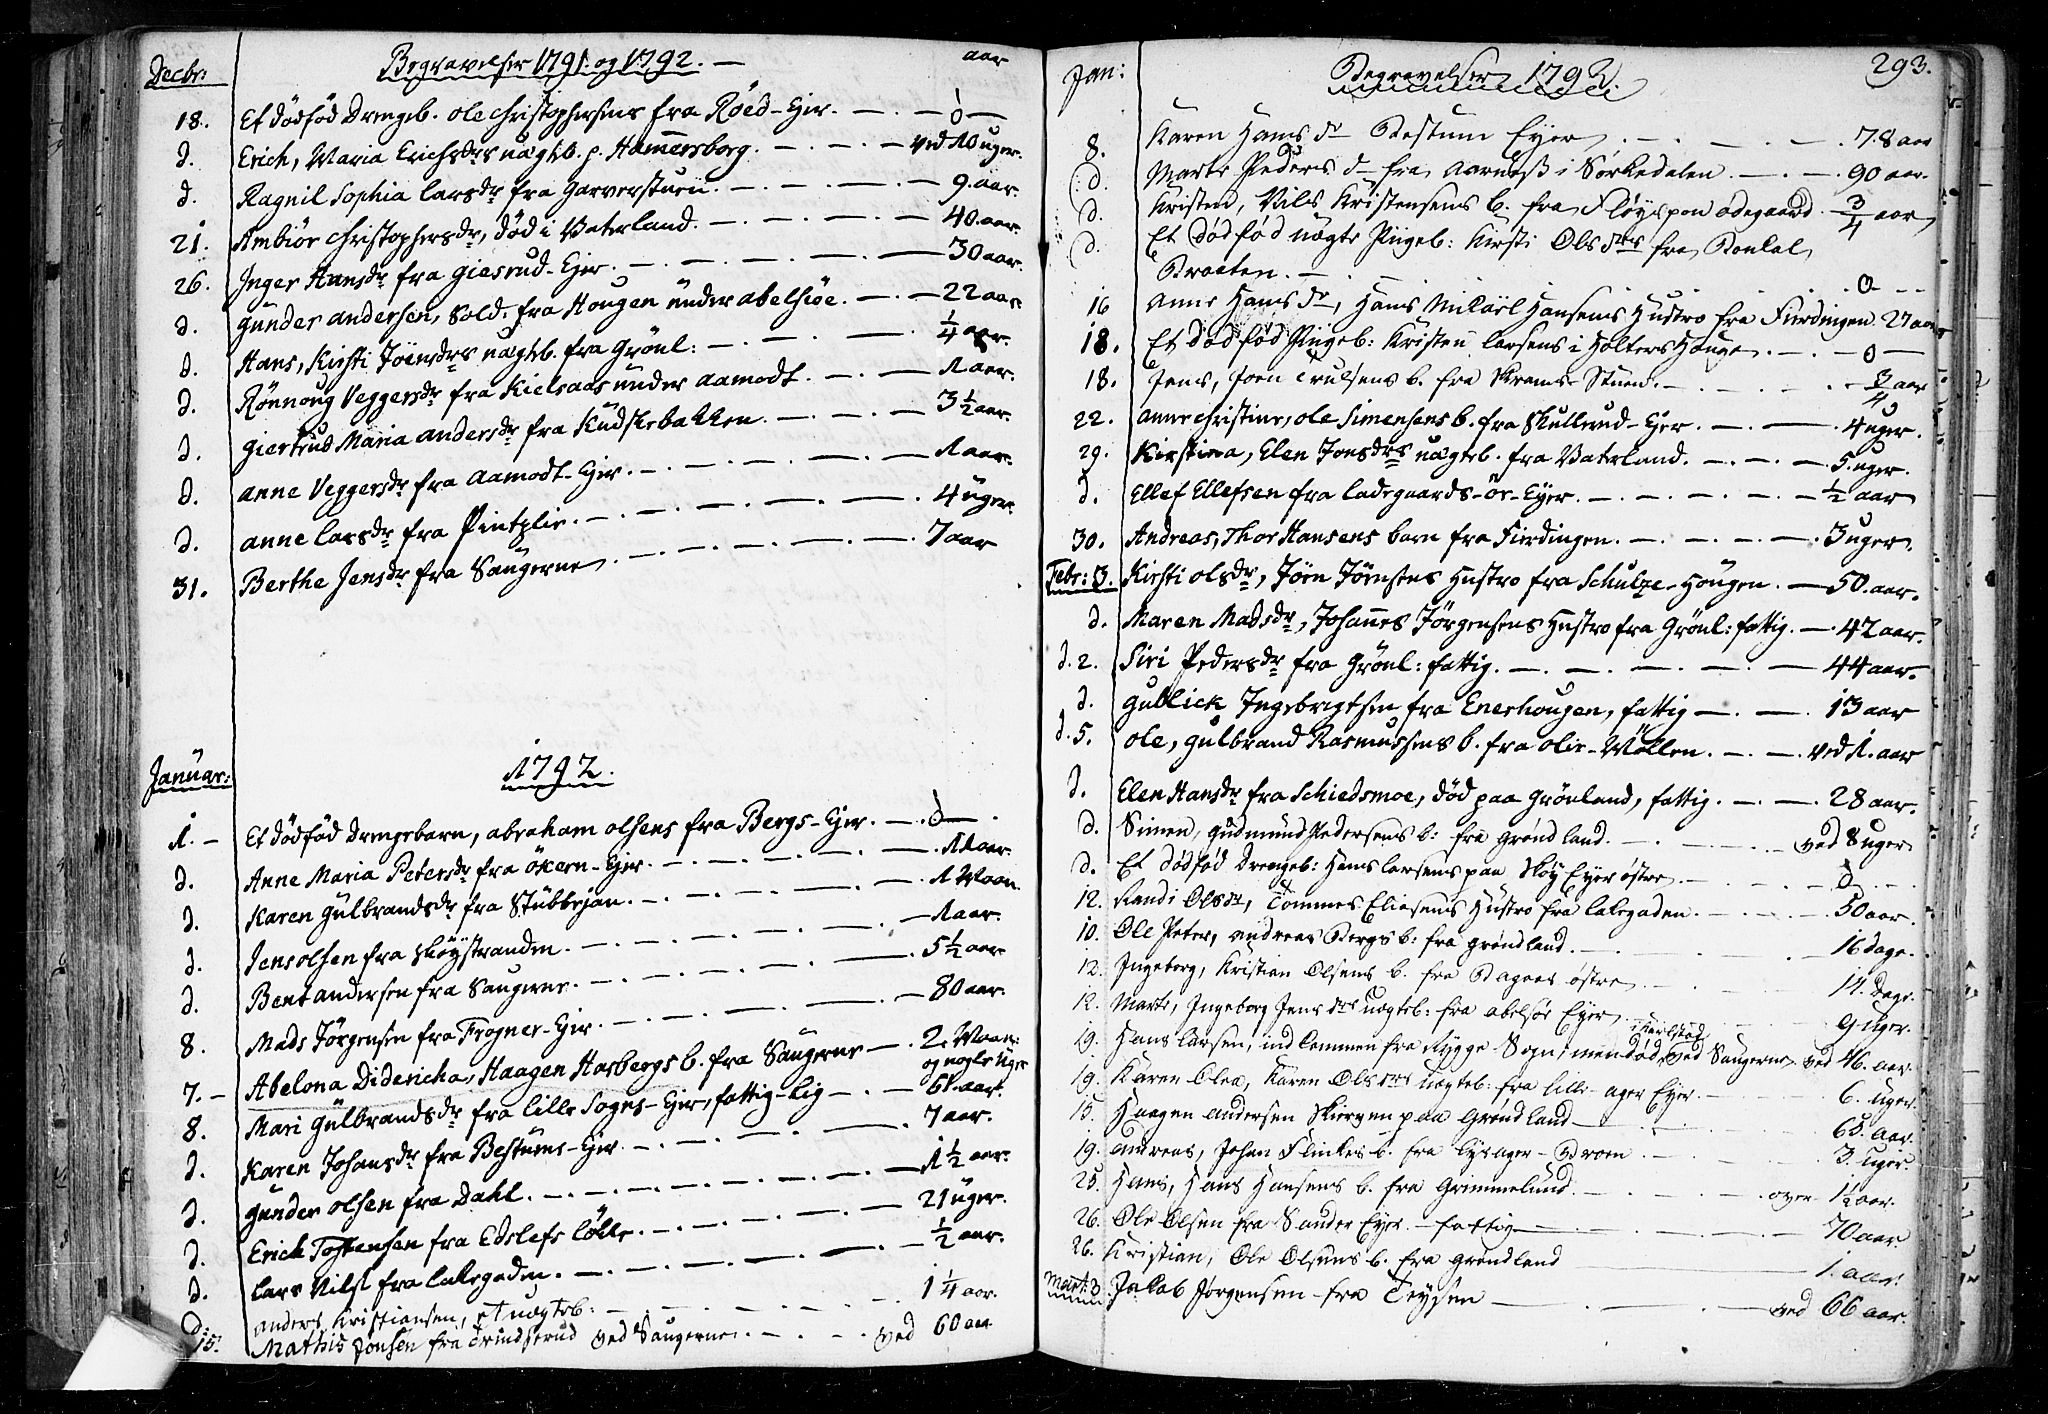 Decbr: Begravelser 1791. og 1792. — aar
18. Et dödföd Drengeb. ole christophersens fra Röed-Eier. — 0 —
d. Erich, Maria Erichsdrs uægteb. p. Hammersborg. — ved 10 uger.
d. Ragnil Sophia larsdr fra Garverstuen. — 9. aar.
21. Ambiör christophersdr, död i Vaterland. — 40. aar.
26. Inger Hansdr fra Giesrud-Eier. — 30 aar.
d. Gunder andersen, Sold. fra Hougen under abelsöe. — 22 aar
d. Hans, Kirsti Jöensdrs uægteb. fra Grönl: — 1/4 aar.
d. Rönnoug Veggersdr fra Kielsaas under aamodt. — 1 aar.
d. Giertrud Maria andersdr fra Kudskebakken. — 3 1/2 aar.
d. anne Veggersdr fra aamodt-Eier. — 1 aar.
d. anne larsdr fra Pintzlie. — 4 uger.
31. Berthe Jensdr fra Saugerne. — 7 aar
Januar: 1792.
1. — Et dödföd Drengebarn, abraham olsens fra Bergs-Eier. — 0 —
d. Anne Maria Petersdr fra ökern-Eier. — 11 aar.
d. Karen Gulbrandsdr fra Stubberjan. — 1 Maan.
d. Jens olsen fra Sköystranden. — 1 aar.
d. Bent andersen fra Saugerne. — 5 1/2 aar
8. Mads Jörgensen fra Frogner-Eier. — 80 aar.
7. — Abelona Didericha, Haagen Hasbergs b. fra Saugerne — 2. Maan: og nogle Uger
8. Mari Gulbrandsdr fra lille Sogns-Eier, fattig-lig — 61. aar.
d. Karen Johansdr fra Bestums-Eier. — 7 aar.
d. Gunder olsen fra Dahl. — 1 1/2 aar.
d. Erich Tostensen fra Edslefs lökke. — 21 uger.
d. lars Nils: fra lakegaden. — 1/2 aar.
d. anders, Kristiansen, et uægteb: — 1 1/4 aar.
15. Mathis Jonsen fra Trindserud ved Saugerne. — ved 60 aar
Jan: Begravelser 1792. 293.
8. Karen Hans dr Bestum Eyer — 78 aar
d. Marte Peders d— fra Aarneß i Sörkedalen. — 90 aar.
d. Kristen, Nils Kristensens b. fra Flöyspon ødegaard. 3/4 aar
d. Et dødfød uægte Pigeb: Kirsti Ols drs fra
Braaten. — 0 —
16 Anne Hans dr, Hans Mikael Hansens Hustro fra Fierdingen. 27 aar
18. Et dødfød Pigeb: Kristen larsens i Holters Houge. — 0 —
18. Jens, Joen Trulsens b. fra Krams-Stuen. — 3/4 aar
22. anne christine, ole Simensens b. fra Skullerud-Eier. — 4 uger.
29. Kirstina, Elen Jonsdrs uægteb. fra Vaterland. — 5. uger.
d. Ellef Ellefsen fra ladegaards-ör-Eyer. — 1/2 aar
30. Andreas, Thor Hansens barn fra Fierdingen. — 3 uger.
Febr: 3. Kirsti olsdr, Jörn Jörnsens Hustro fra Schulze-Hougen. — 50. aar.
d. Maren Madsdr, Johannes Jörgensens Hustro fra Grönl: fattig. — 42 aar.
d. 2. Siri Pedersdr fra Grönl: fattig. — 44 aar.
d. Gublick Ingebrigtsen fra Enerhougen, fattig — 13 aar
d. 5. ole, Gulbrand Rasmussens b. fra olie-Möllen. — ved 1. aar
d. Elen Hansdr fra Schiedsmoe, död paa Grönland, fattig. — 28 aar.
d. Simen, Gudmund Pedersens b: fra Grønd land. — ved 8 uger
d. Et dødfød Drengeb: Hans larsens paa Skøy Eyer østre. — 0 —
12. Randi Olsdr, Tommes Eliasens Hustro fra lakegaden. — 50 aar.
10. Ole Peter, Andreas Bergs b: fra grøndland. — 16 dage.
12. Ingeborg, Kristian Olsens b. fra Bogaas østre — 14. Dage.
12. Marte, Ingeborg Jens drs uægteb: fra abelsøe Eyer — 9 uger.
19. Hans larsen, ind kommen fra Rygge Sogn, men død i Karlstad ved Saugerne, ved 46. aar.
19. Karen Olea, Karen Ols drs uægteb: fra lille-ager Eyer. — 6. uger.
15. Haagen andersen Skiernen paa Grøndland — 65. aar.
19. andreas, Johan Flinkes b. fra lysager-Broen — 3. uger.
25. Hans, Hans Hansens b. fra Grimmelund. — over 1 1/2 aar.
26. Ole Olsen fra Sander Eyer. — fattig — 70 aar.
26. Kristian, Ole Olsens b. fra Grøndland — 1. aar.
Mart: 3. Jakob Jørgensen fra Teysen — ved 66 aar.